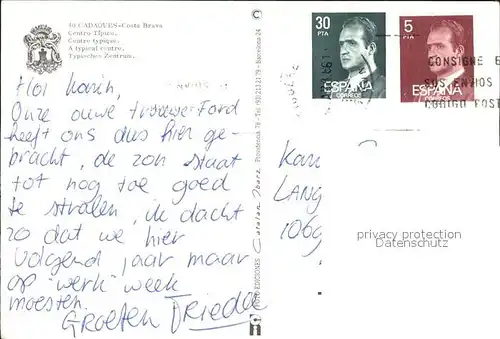 40 CADAQUES-Costa Brava
Centro Típico.
Centre typique.
A typical centre.
Typisches Zentrum.
Hoi Karin,
Onze ouwe trouwe Ford
heeft ons dus hier ge-
bracht, de zon staat
tot nog toe goed
te stralen, ik dacht
zo dat we hier
volgend jaar maar
op "werk" week
moesten.
GROETEN Trieda
EDICIONES
Catalan Ibarz
Providencia, 78 - Tel. (93) 213 21 79 - Barcelona-24
30
PTA
ESPAÑA
CORREOS
5
PTA
ESPAÑA
CORREOS
CONSIGNE E
SUS ENVIOS
CODIGO POST
Kar
LANG
1069
privacy protection
Datenschutz